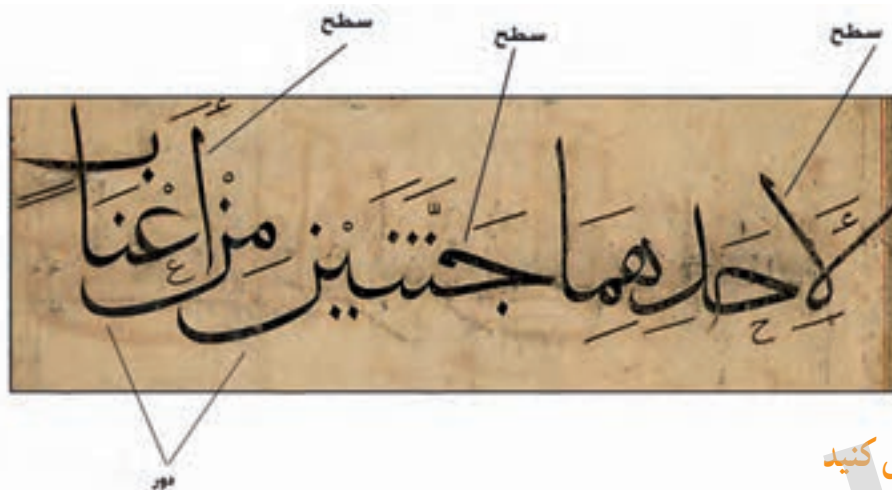 سطح سطح سطح
لِأَحَدِهِمَا جَنَّتَيْنِ مِنْ أَعْنَابٍ
دور
کنید